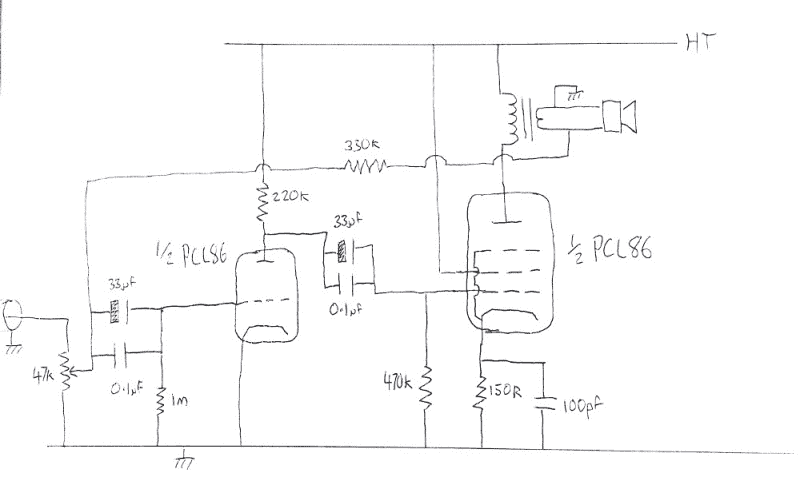 HT
330k
220k
33µF
1/2 PCL86
1/2 PCL86
33µF
0.1µF
47k
0.1µF
1m
470k
150R
100pF